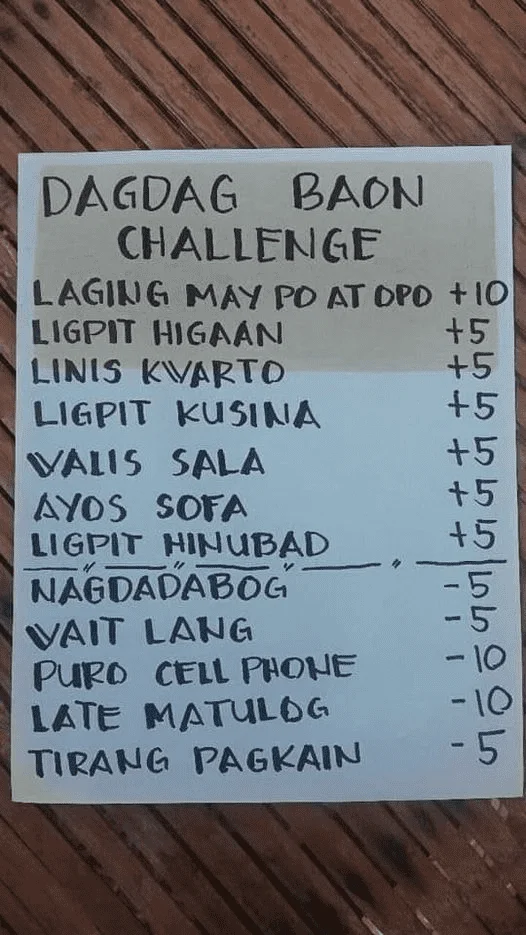 DAGDAG BAON
CHALLENGE
LAGING MAY PO AT OPO +10
LIGPIT HIGAAN +5
LINIS KWARTO +5
LIGPIT KUSINA +5
WALIS SALA +5
AYOS SOFA +5
LIGPIT HINUBAD +5
NAGDADABOG -5
WAIT LANG -5
PURO CELL PHONE -10
LATE MATULOG -10
TIRANG PAGKAIN -5